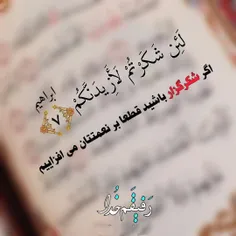 لَئِن شَكَرْتُمْ لَأَزِيدَنَّكُمْ
ابراهیم
۷
اگر شکرگزار باشید قطعا بر نعمتتان می افزاییم
رَفیقَم خُدا